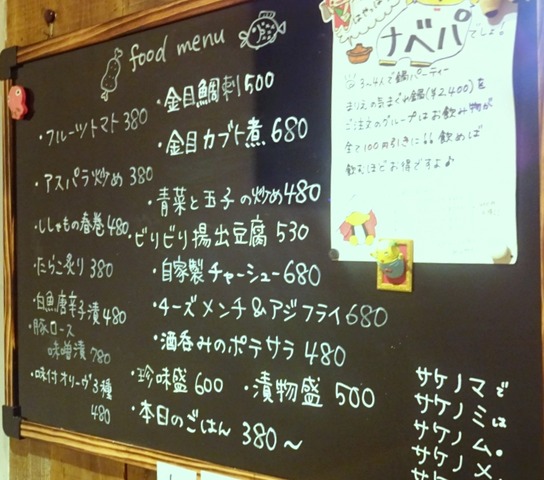 food menu
・フルーツトマト 380
・アスパラ炒め 380
・ししゃもの春巻 480
・たらこ炙り 380
・白魚唐辛子漬 480
・豚ロース
味噌漬 780
・味付オリーヴ3種
480
・金目鯛刺 500
・金目カブト煮 680
・青菜と玉子の炒め 480
・ビリビリ揚出豆腐 530
・自家製チャーシュー 680
・チーズメンチ&アジフライ 680
・酒呑みのポテサラ 480
・珍味盛 600
・漬物盛 500
・本日のごはん 380〜
ナベパ でしょ!
3〜4人で鍋パーティー
まりえの気まぐれ鍋(¥2400)を
ご注文のグループはお飲み物が
全て100円引きに!! 飲めば
飲むほどお得ですよ♪
サケノマで
サケノミは
サケノム。
サケノメ